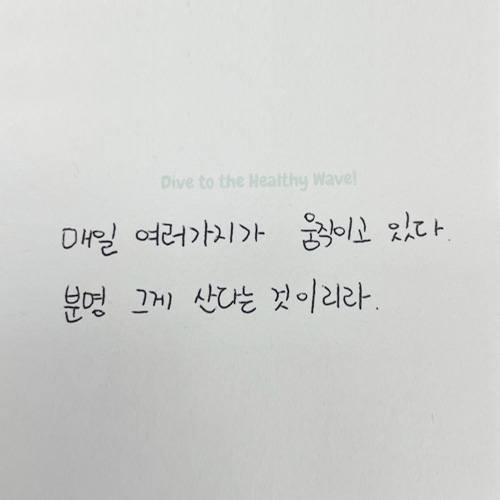 Dive to the Healthy Wave!
매일 여러가지가 움직이고 있다.
분명 그게 산다는 것이리라.